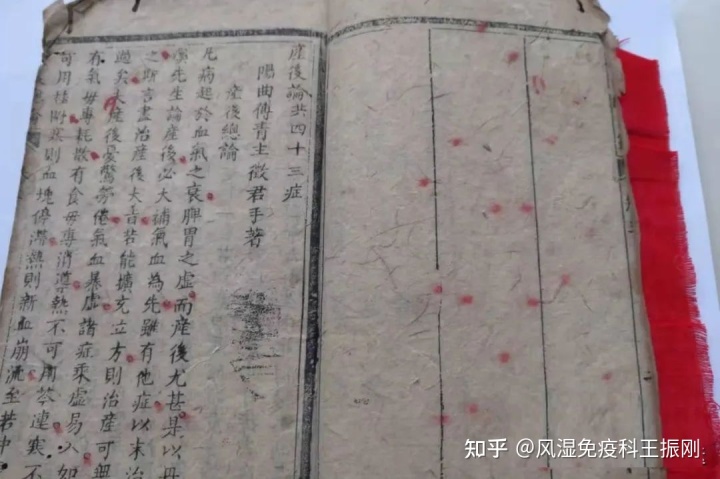 產後論共四十三症
陽曲傅青主徵君手著
產後總論
凡病起於血氣之衰脾胃之虛而產後尤甚是以丹
溪先生論產後必大補氣血為先雖有他症以末治
之斯言盡治產後大旨若能擴充立方則治產可無
過矣夫產後憂驚勞倦氣血暴虛諸症乘虛易入如
有氣毋專耗散有食毋專消導熱不可用芩連寒不
可用桂附寒則血塊停滯熱則新血崩流至若中
知乎 @风湿免疫科王振刚